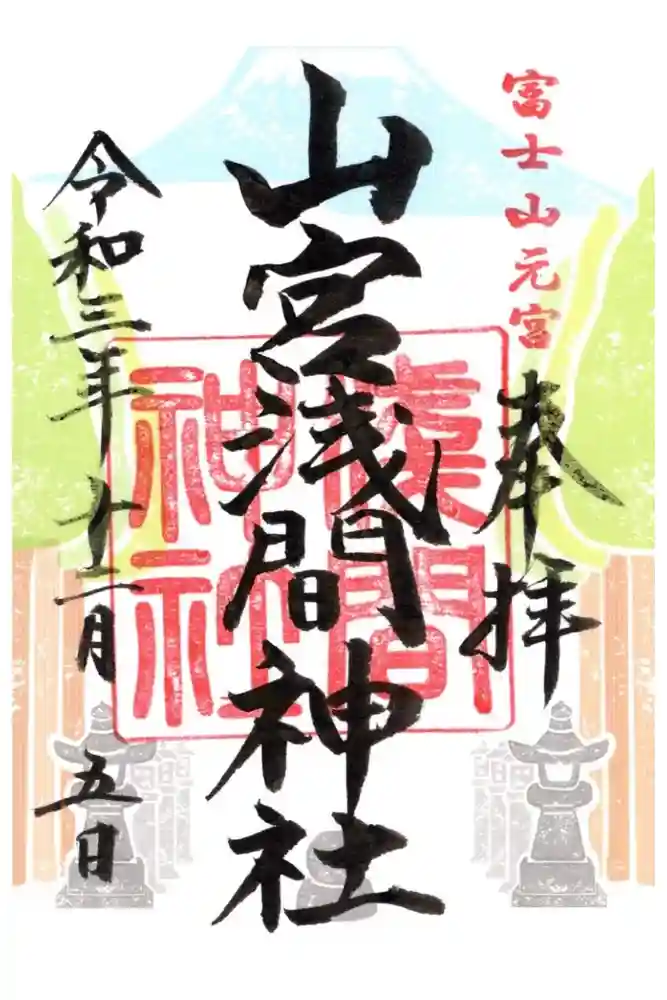 富士山元宮
奉拝
山宮浅間神社
浅間
神社
令和三年十二月五日